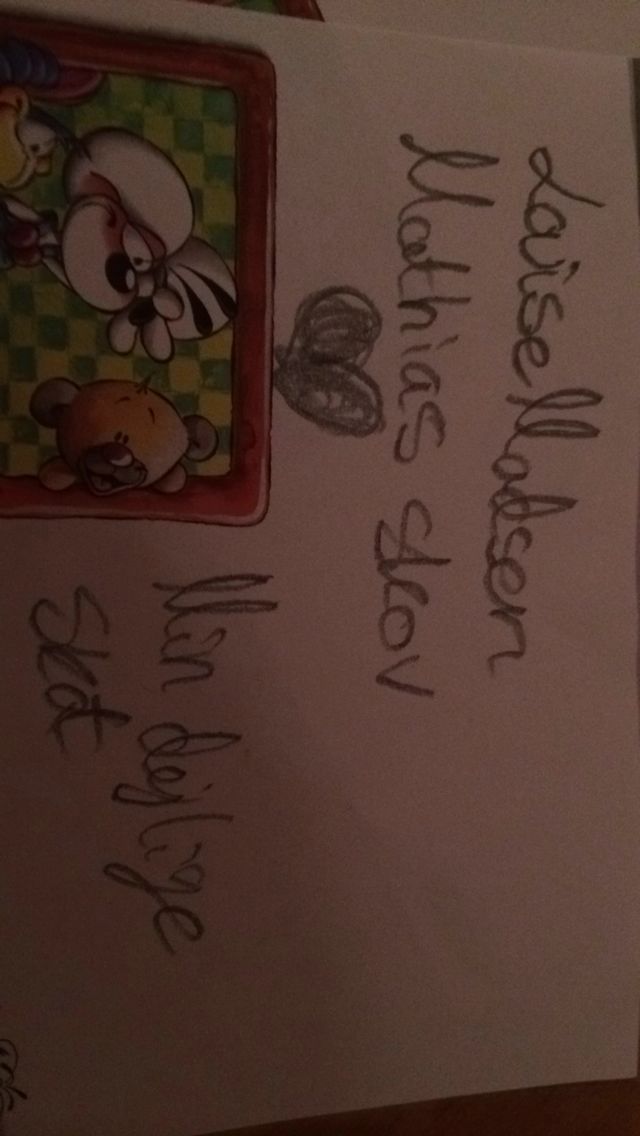 Louise Madsen
Mathias Skov
Min dejlige
Skat